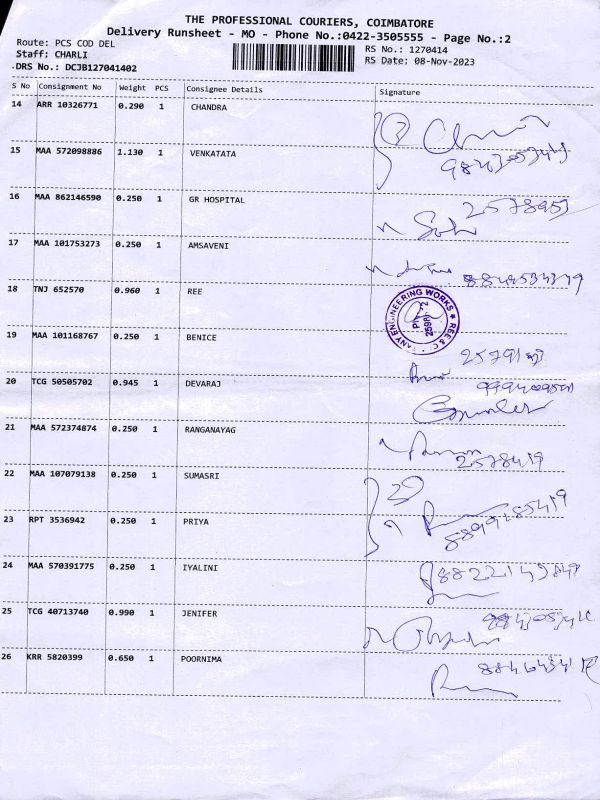 THE PROFESSIONAL COURIERS, COIMBATORE
Delivery Runsheet - MO - Phone No.:0422-3505555 - Page No.:2
Route: PCS COD DEL
Staff: CHARLI
DRS No.: DCJB127041402
RS No.: 1270414
RS Date: 08-Nov-2023
S No Consignment No Weight PCS Consignee Details Signature
14 ARR 10326771 0.290 1 CHANDRA
15 MAA 572098886 1.130 1 VENKATATA
16 MAA 862146590 0.250 1 GR HOSPITAL
2578953
17 MAA 101753273 0.250 1 AMSAVENI
18 TNJ 652570 0.960 1 REE
REE & C ANY ENGINEERING WORKS
19 MAA 101168767 0.250 1 BENICE
20 TCG 50505702 0.945 1 DEVARAJ
21 MAA 572374874 0.250 1 RANGANAYAG
2578419
22 MAA 107079138 0.250 1 SUMASRI
23 RPT 3536942 0.250 1 PRIYA
24 MAA 570391775 0.250 1 IYALINI
25 TCG 40713740 0.990 1 JENIFER
26 KRR 5820399 0.650 1 POORNIMA